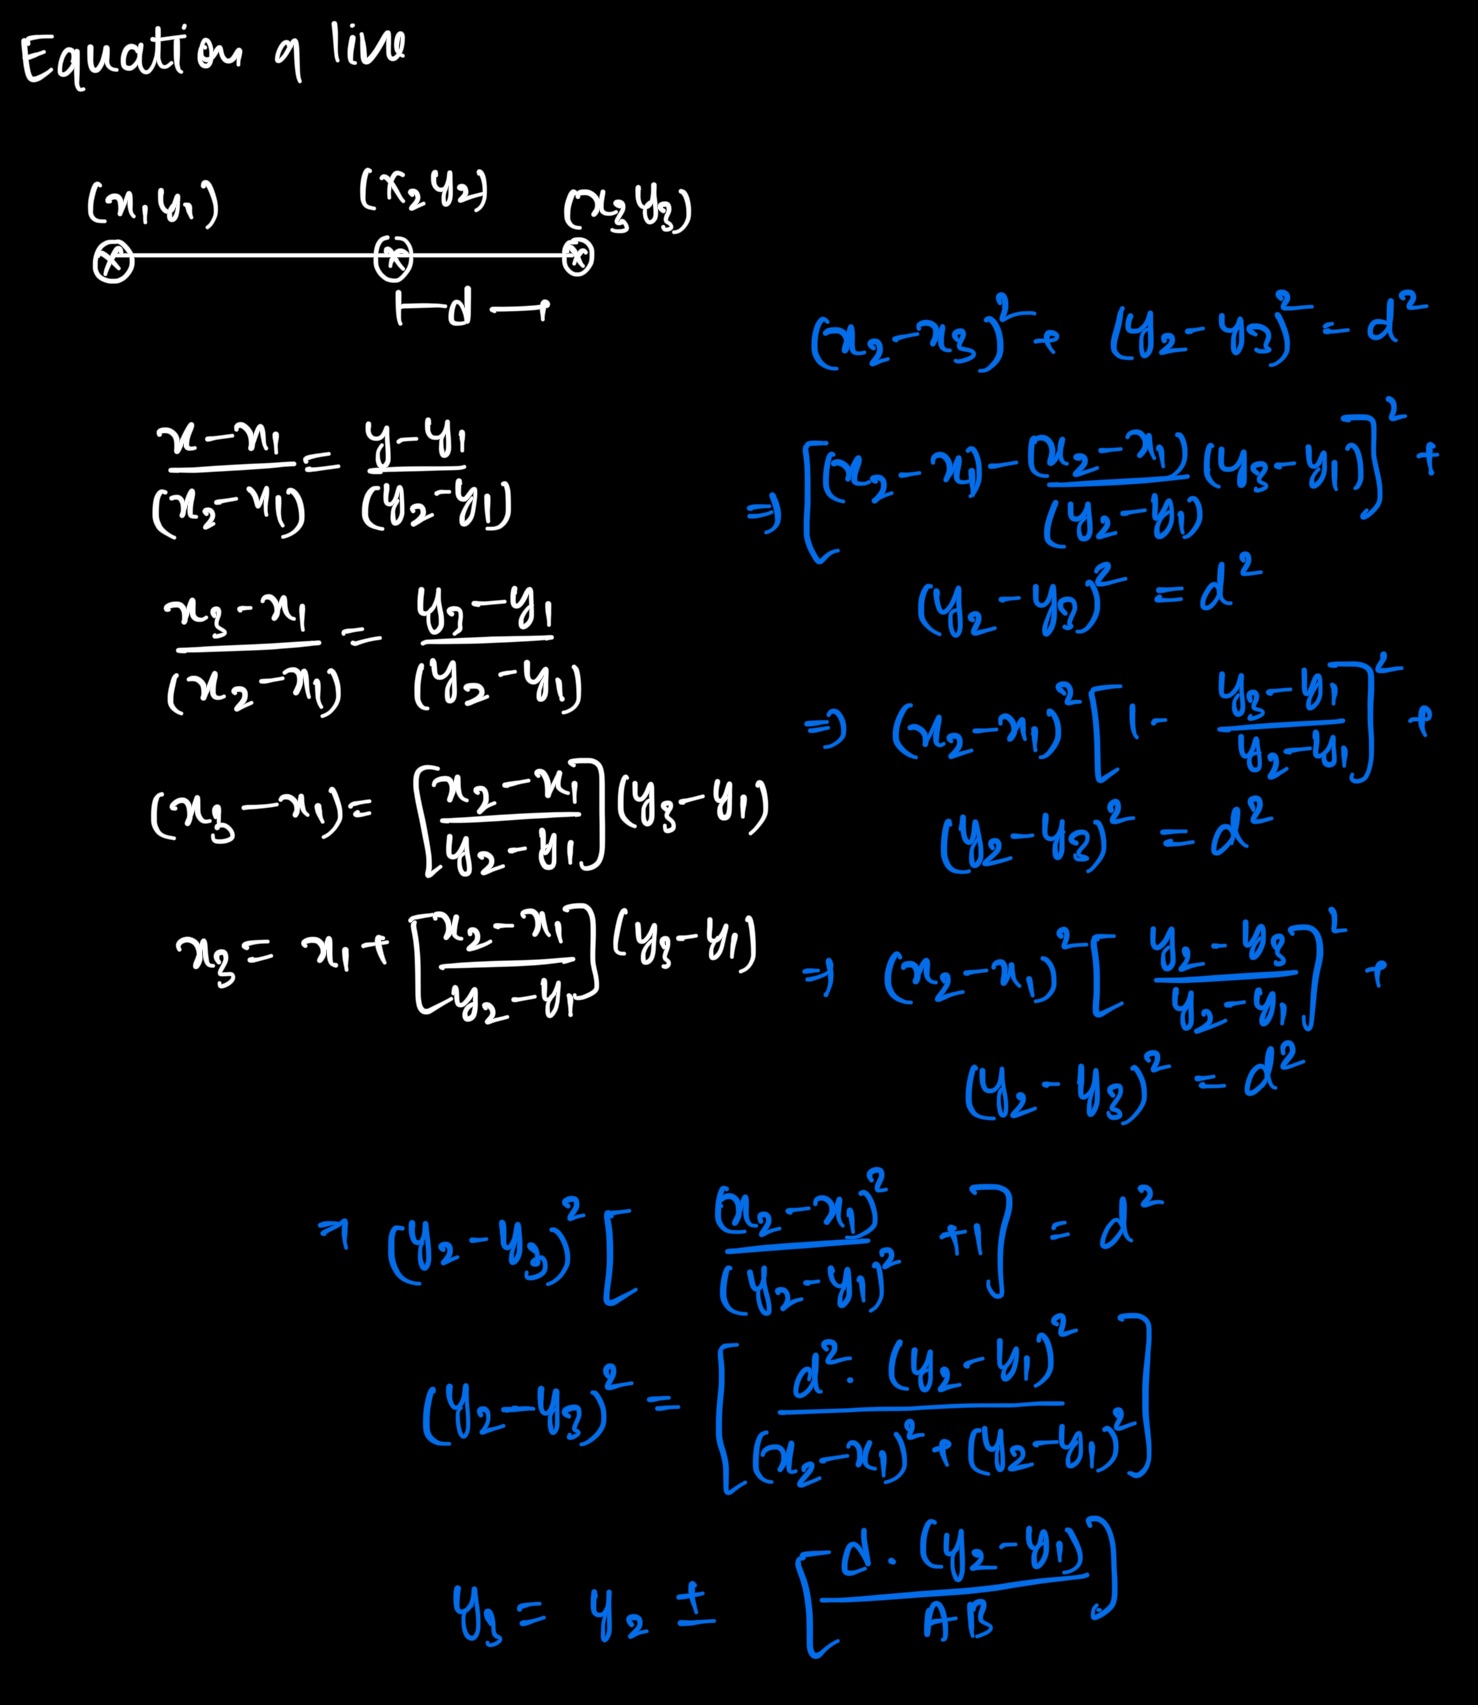 Equation of line
(x₁ y₁) (x₂ y₂) (x₃ y₃)
d
(x - x₁)/(x₂ - x₁) = (y - y₁)/(y₂ - y₁)
(x₃ - x₁)/(x₂ - x₁) = (y₃ - y₁)/(y₂ - y₁)
(x₃ - x₁) = [(x₂ - x₁)/(y₂ - y₁)] (y₃ - y₁)
x₃ = x₁ + [(x₂ - x₁)/(y₂ - y₁)] (y₃ - y₁)
(x₂ - x₃)² + (y₂ - y₃)² = d²
⇒ [(x₂ - x₁) - (x₂ - x₁)/(y₂ - y₁) (y₃ - y₁)]² +
(y₂ - y₃)² = d²
⇒ (x₂ - x₁)² [1 - (y₃ - y₁)/(y₂ - y₁)]² +
(y₂ - y₃)² = d²
⇒ (x₂ - x₁)² [(y₂ - y₃)/(y₂ - y₁)]² +
(y₂ - y₃)² = d²
⇒ (y₂ - y₃)² [(x₂ - x₁)²/(y₂ - y₁)² + 1] = d²
(y₂ - y₃)² = [d² · (y₂ - y₁)²/(x₂ - x₁)² + (y₂ - y₁)²]
y₃ = y₂ ± [d · (y₂ - y₁)/AB]